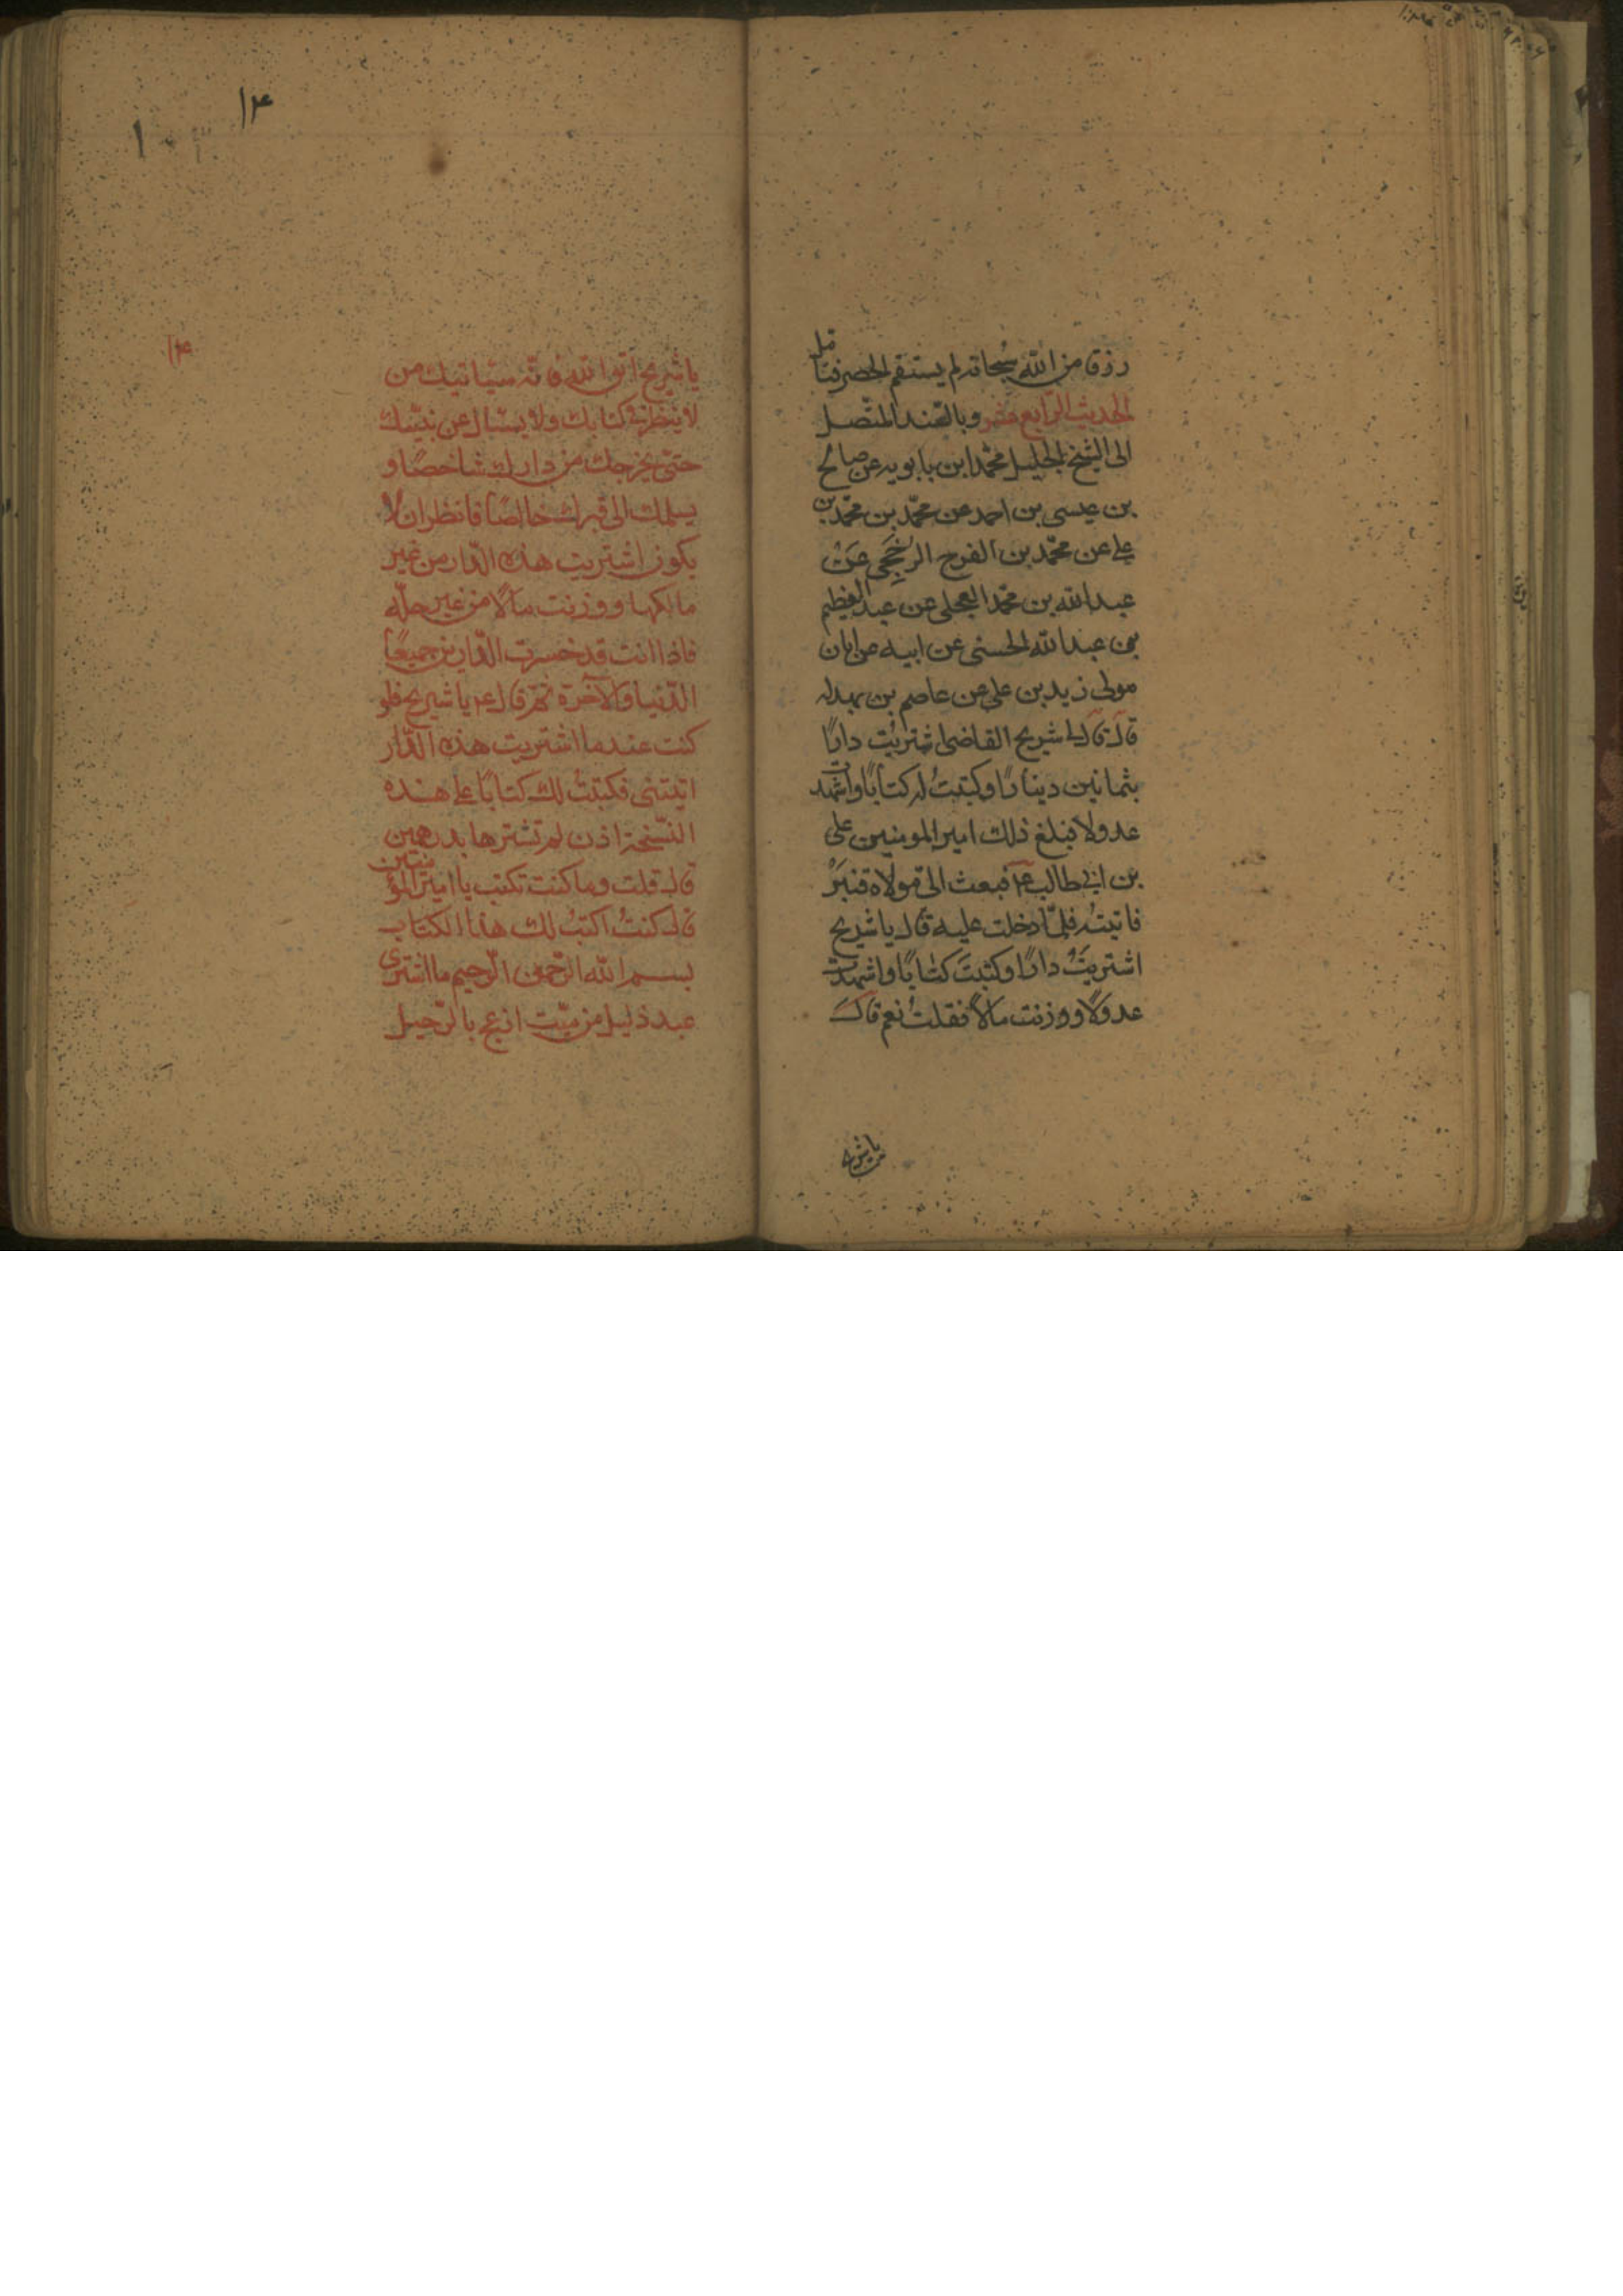 رزق من الله سبحانه لم يستقم الحصر فتامل
الحديث الرابع عشر وبالسند المتصل
الى الشيخ الجليل محمد ابن بابويه عن صالح
بن عيسى بن احمد عن محمّد بن محمّد بن
على عن محمّد بن الفرج الرخجى عن
عبد الله بن محمد العجلى عن عبد العظيم
بن عبد الله الحسنى عن ابيه عن ابان
مولى زيد بن على عن عاصم بن بهدله
قال قال لى شريح القاضى اشتريت دارًا
بثمانين دينارًا وكتبتُ له كتابًا واشهدت
عدولا فبلغ ذلك امير المومنين على
بن ابى طالب عم فبعث الى مولاه قنبر
فاتيته فلمّا دخلت عليه قال يا شريح
اشتريتَ دارًا وكتبتَ كتابًا واشهدت
عدولًا ووزنت مالًا فقلتُ نعم قال
يا شريح
۱۴
يا شريح اتق الله فانّه سياتيك من
لا ينظر فى كتابك ولا يسئال عن بيّنتك
حتّى يخرجك من دارك شاخصًا و
يسلمك الى قبرك خالصًا فانظر ان لا
يكون اشتريت هذه الدّار من غير
مالكها ووزنت مالًا من غير حلّه
فاذا انت قد خسرت الدّارين جميعًا
الدّنيا والآخرة ثمّ قال عم يا شريح فلو
كنت عند ما اشتريت هذه الدّار
اتيتنى فكتبتُ لك كتابًا على هذه
النّسخة اذن لم تشترها بدرهمين
قال قلت وما كنت تكتب يا امير المؤمنين
قال كنتُ اكتبُ لك هذا الكتاب
بسم الله الرّحمن الرّحيم ما اشترى
عبد ذليل من ميّت ازعج بالرّحيل